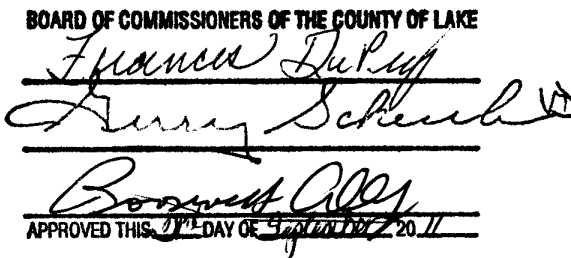 BOARD OF COMMISSIONERS OF THE COUNTY OF LAKE
Frances DuPey
Gerry Scheub
Roosevelt Allen
APPROVED THIS DAY OF September 20 11